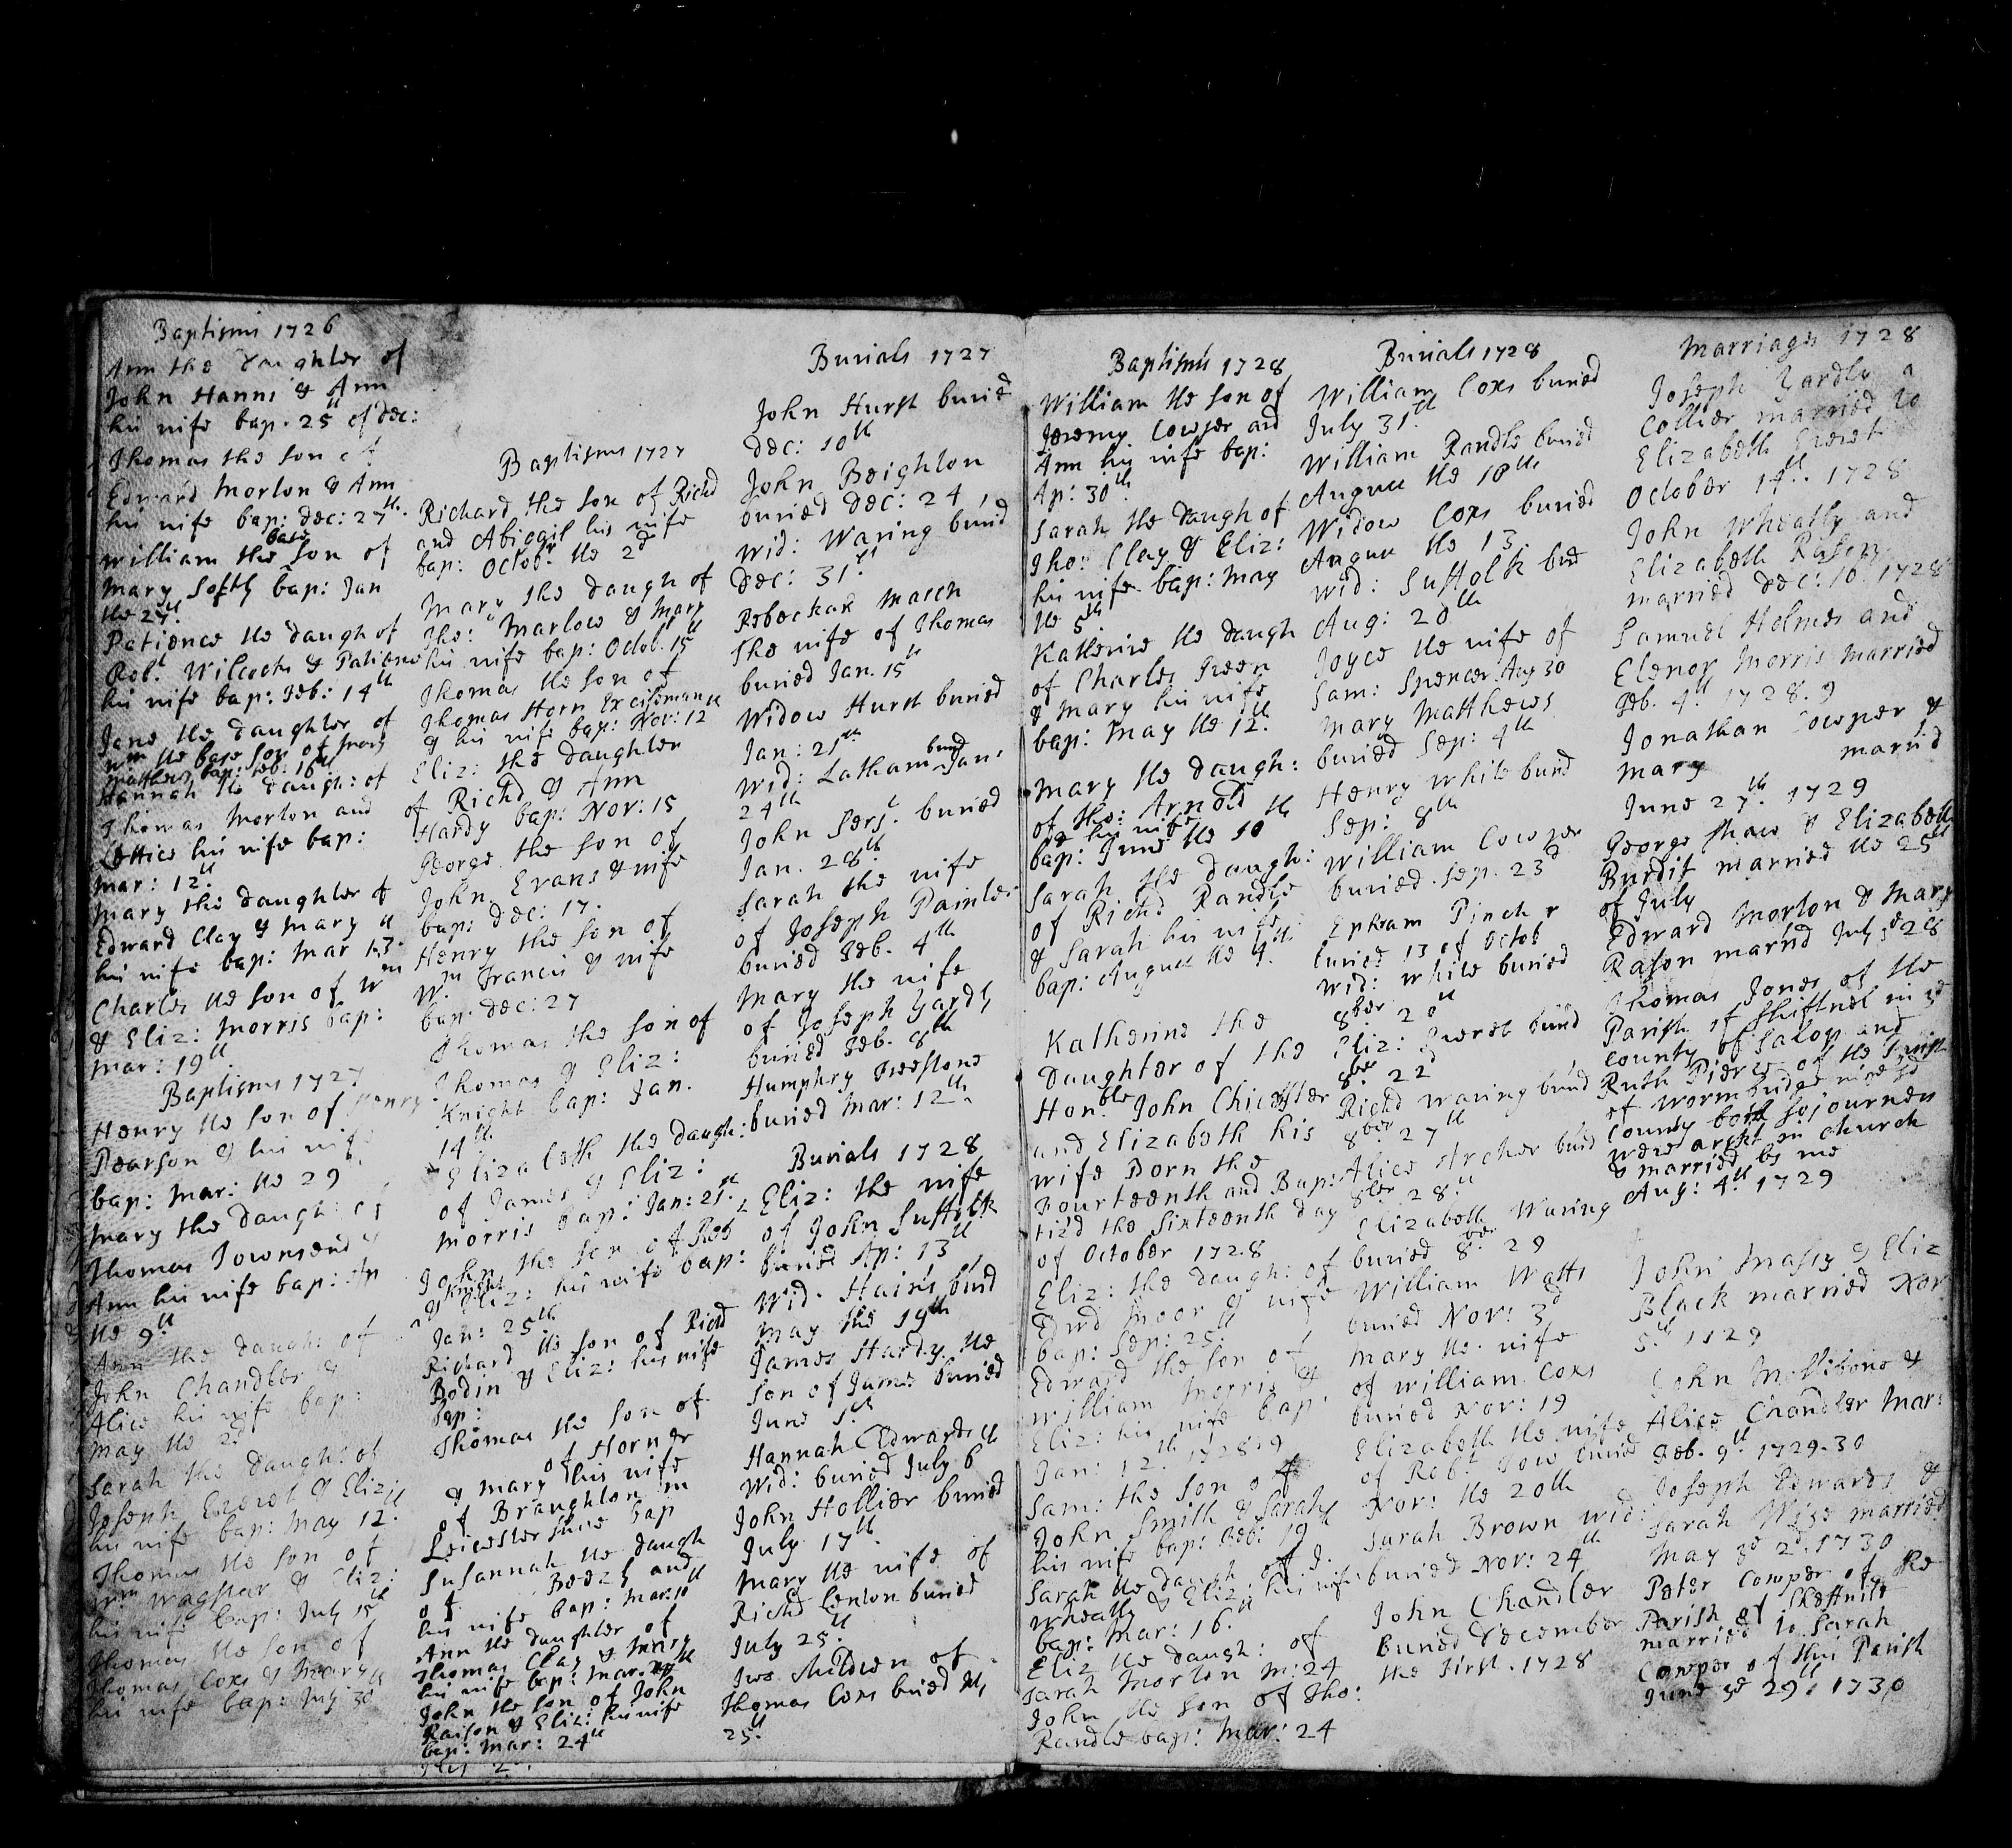 Baptisms 1726
Ann the Daughter of
John Hanns & Ann
his wife bap. 25th of Dec:
Thomas the son of
Edward Morton & Ann
his wife bap: Dec: 27th.
William the base son of
Mary bap: Jan
the 27th
Patience the Daugh of
Robt. Wilcocks & Patience
his wife bap: Feb: 14th
Jane the Daughter of
Wm the base son of Mary
Matthews bap: Feb: 16th
Hannah the daugh: of
Thomas Morton and
Lettice his wife bap:
Mar: 12th.
Mary the Daughter of
Edward Clay & Mary
his wife bap: Mar 13.
Charles the son of Wm
& Eliz: Morris bap:
Mar: 19th
Baptisms 1727
Henry the son of Henry
Pearson & his wife
bap: Mar: the 29
Mary the Daugh: of
Thomas Townsend &
Ann his wife bap: Ap
the 9th
Ann the daugh: of
John Chandler &
Alice his wife bap:
May the 2d
Sarah the daugh: of
Joseph Everet & Eliz:
his wife bap: May 12.th
Thomas the son of
Wm Wagstaf & Eliz:
his wife bap: July 15th
Thomas the son of
Thomas Coxs & Mary
his wife bap: July 30th
Baptisms 1727
Richard the son of Richd
and Abigail his wife
bap: Octobr. the 2d
Mary the Daugh of
Tho: Marlow & Mary
his wife bap: Octobr. 15th
Thomas the son of
Thomas Horn Exciseman
& his wife bap: Nov: 12th
Eliz: the Daughter
of Richd & Ann
Hardy bap: Nov: 15
George the son of
John Evans & wife
bap: Dec: 17.
Henry the son of
Wm Francis & wife
bap. Dec: 27
Thomas the son of
Thomas & Eliz:
Knight bap: Jan.
14th
Elizabeth the daugh:
of James & Eliz:
Morris bap: Jan: 21st.
John the son of Rob
Knight
& Eliz: his wife bap:
Jan: 25th
Richard the son of Richd
Bodin & Eliz: his wife
bap:
Thomas the son of
of Horner
& Mary his wife
of Braughton in
Leicestershire bap
Susannah the daugh
of Beech and
his wife bap: Mar: 10th
Ann the daughter of
Thomas Clay & Mary
his wife bap: Mar:
John the son of John
Raison & Eliz: his wife
bap: Mar: 24th
Burials 1727
John Hurst buried
Dec: 10th
John Beighton
buried Dec: 24
Wid: Waring buried
Dec: 31st.
Rebeckah March
the wife of Thomas
buried Jan. 15th
Widow Hurst buried
Jan: 21th
Wid: Latham buried Jan:
24th
John Serjt. buried
Jan. 28th.
Sarah the wife
of Joseph Painter
buried Feb. 4th
Mary the wife
of Joseph Yardly
buried Feb. 8th
Humphry Freestone
buried Mar: 12th
Burials 1728
Eliz: the wife
of John Suffolk
buried Ap: 13th
Wid. Hains burd
May the 19th
James Hardy the
son of James buried
June 1st
Hannah Edwards
Wid: buried July 6th
John Hollier buried
July 17th
Mary the wife of
Richd Lenton buried
July 25th.
Two children of
Thomas Coxs buried
25th.
Baptisms 1728
William the son of
Jeremy Cowper and
Ann his wife bap:
Ap: 30th.
Sarah the Daugh of
Tho: Clay & Eliz:
his wife bap: May
the 5th
Katherine the daugh
of Charles Green
& Mary his wife
bap: May the 12th.
Mary the Daugh:
of tho: Arnold
& his wife
bap: June the 10th
Sarah the Daugh:
of Richd Randle
& Sarah his wife
bap: August the 4th.
Katherine the
Daughter of the
Honble John Chichester
and Elizabeth his
wife Born the
Fourteenth and Bap:
tiz'd the Sixteenth day
of October 1728
Eliz: the daugh: of
Edwd Moor & wife
bap: Sep: 25th.
Edward the son of
William Morris &
Eliz: his wife bap:
Jan: 12th. 1728:9
Sam: the son of
John Smith & Sarah
his wife bap: Feb: 19th
Sarah the daugh. of J.
Wheatly & Eliz: his wife
bap: Mar: 16th
Eliz the daugh: of
Sarah Morton M: 24
John the son of Tho:
Randle bap: Mar: 24
Burials 1728
William Coxs buried
July 31st.
William Randle buried
August the 10th
Widow Coxs buried
August the 13.
Wid: Suffolk bud
Aug: 20th
Joyce the wife of
Sam: Spencer Aug 30
Mary Matthews
buried Sep: 4th
Henry White burid
Sep: 8th
William Cowper
buried. Sep. 23d
Ephram Pinch r
buried 13 of Octob
Wid: White buried
8ber 20th
Eliz: Everet burid
8ber 22
Richd Waring burid
8ber. 27th
Alice Archer burid
8ber 28th
Elizabeth Waring
buried 8ber. 29
William Watts
buried Nov: 3d
Mary the wife
of William Coxs
buried Nov: 19
Elizabeth the wife
of Robt. Tow buried
Nov: the 20th
Sarah Brown wid:
buried Nov: 24th
John Chandler
Buried December
the First. 1728
Marriages 1728
Joseph Yardly a
Collier married to
Elizabeth Everet
October 14th. 1728
John Wheatly and
Elizabeth Rason
married Dec: 10th 1728
Samuel Holmes and
Elenor Morris married
Feb. 4th 1728.9
Jonathan Cowper &
Mary married
June 27th. 1729
George Shaw & Elizabeth
Burdit married the 25th
of July
Edward Morton & Mary
Rason marrid July ye 28
Thomas Jones of the
Parish of Shiffnel in ye
County of Salop and
Ruth Pierce of the Parish
of Wormbridge in ye sd
County both sojourners
were askt in Church
& married by me
Aug: 4th 1729
John Massy & Eliz
Black married Nov
5th 1729
John Mollibone &
Alice Chandler Mar:
Feb. 9th. 1729.30
Joseph Edwards &
Sarah Wise married
May ye 2d. 1730
Peter Cowper of the
Parish of Sheffnill
married to Sarah
Cowper of this Parish
June ye 29th 1730